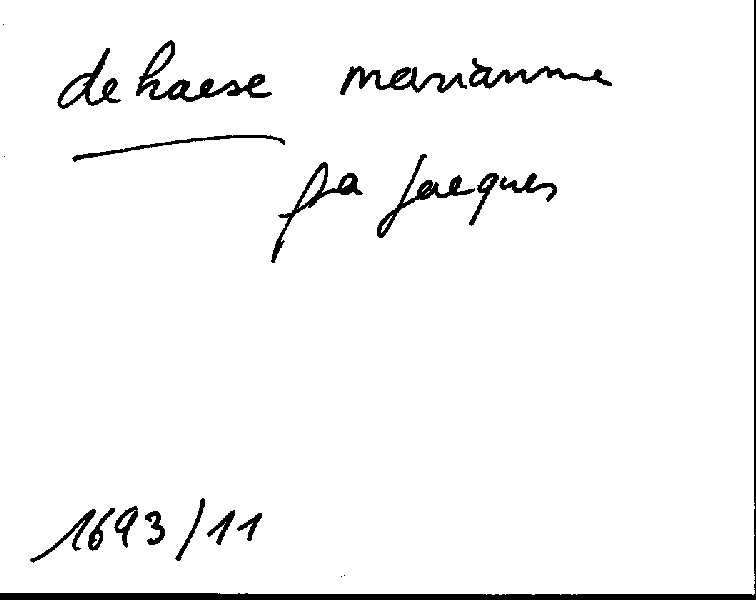 dehaese marianne
fa Jacques
1693/11